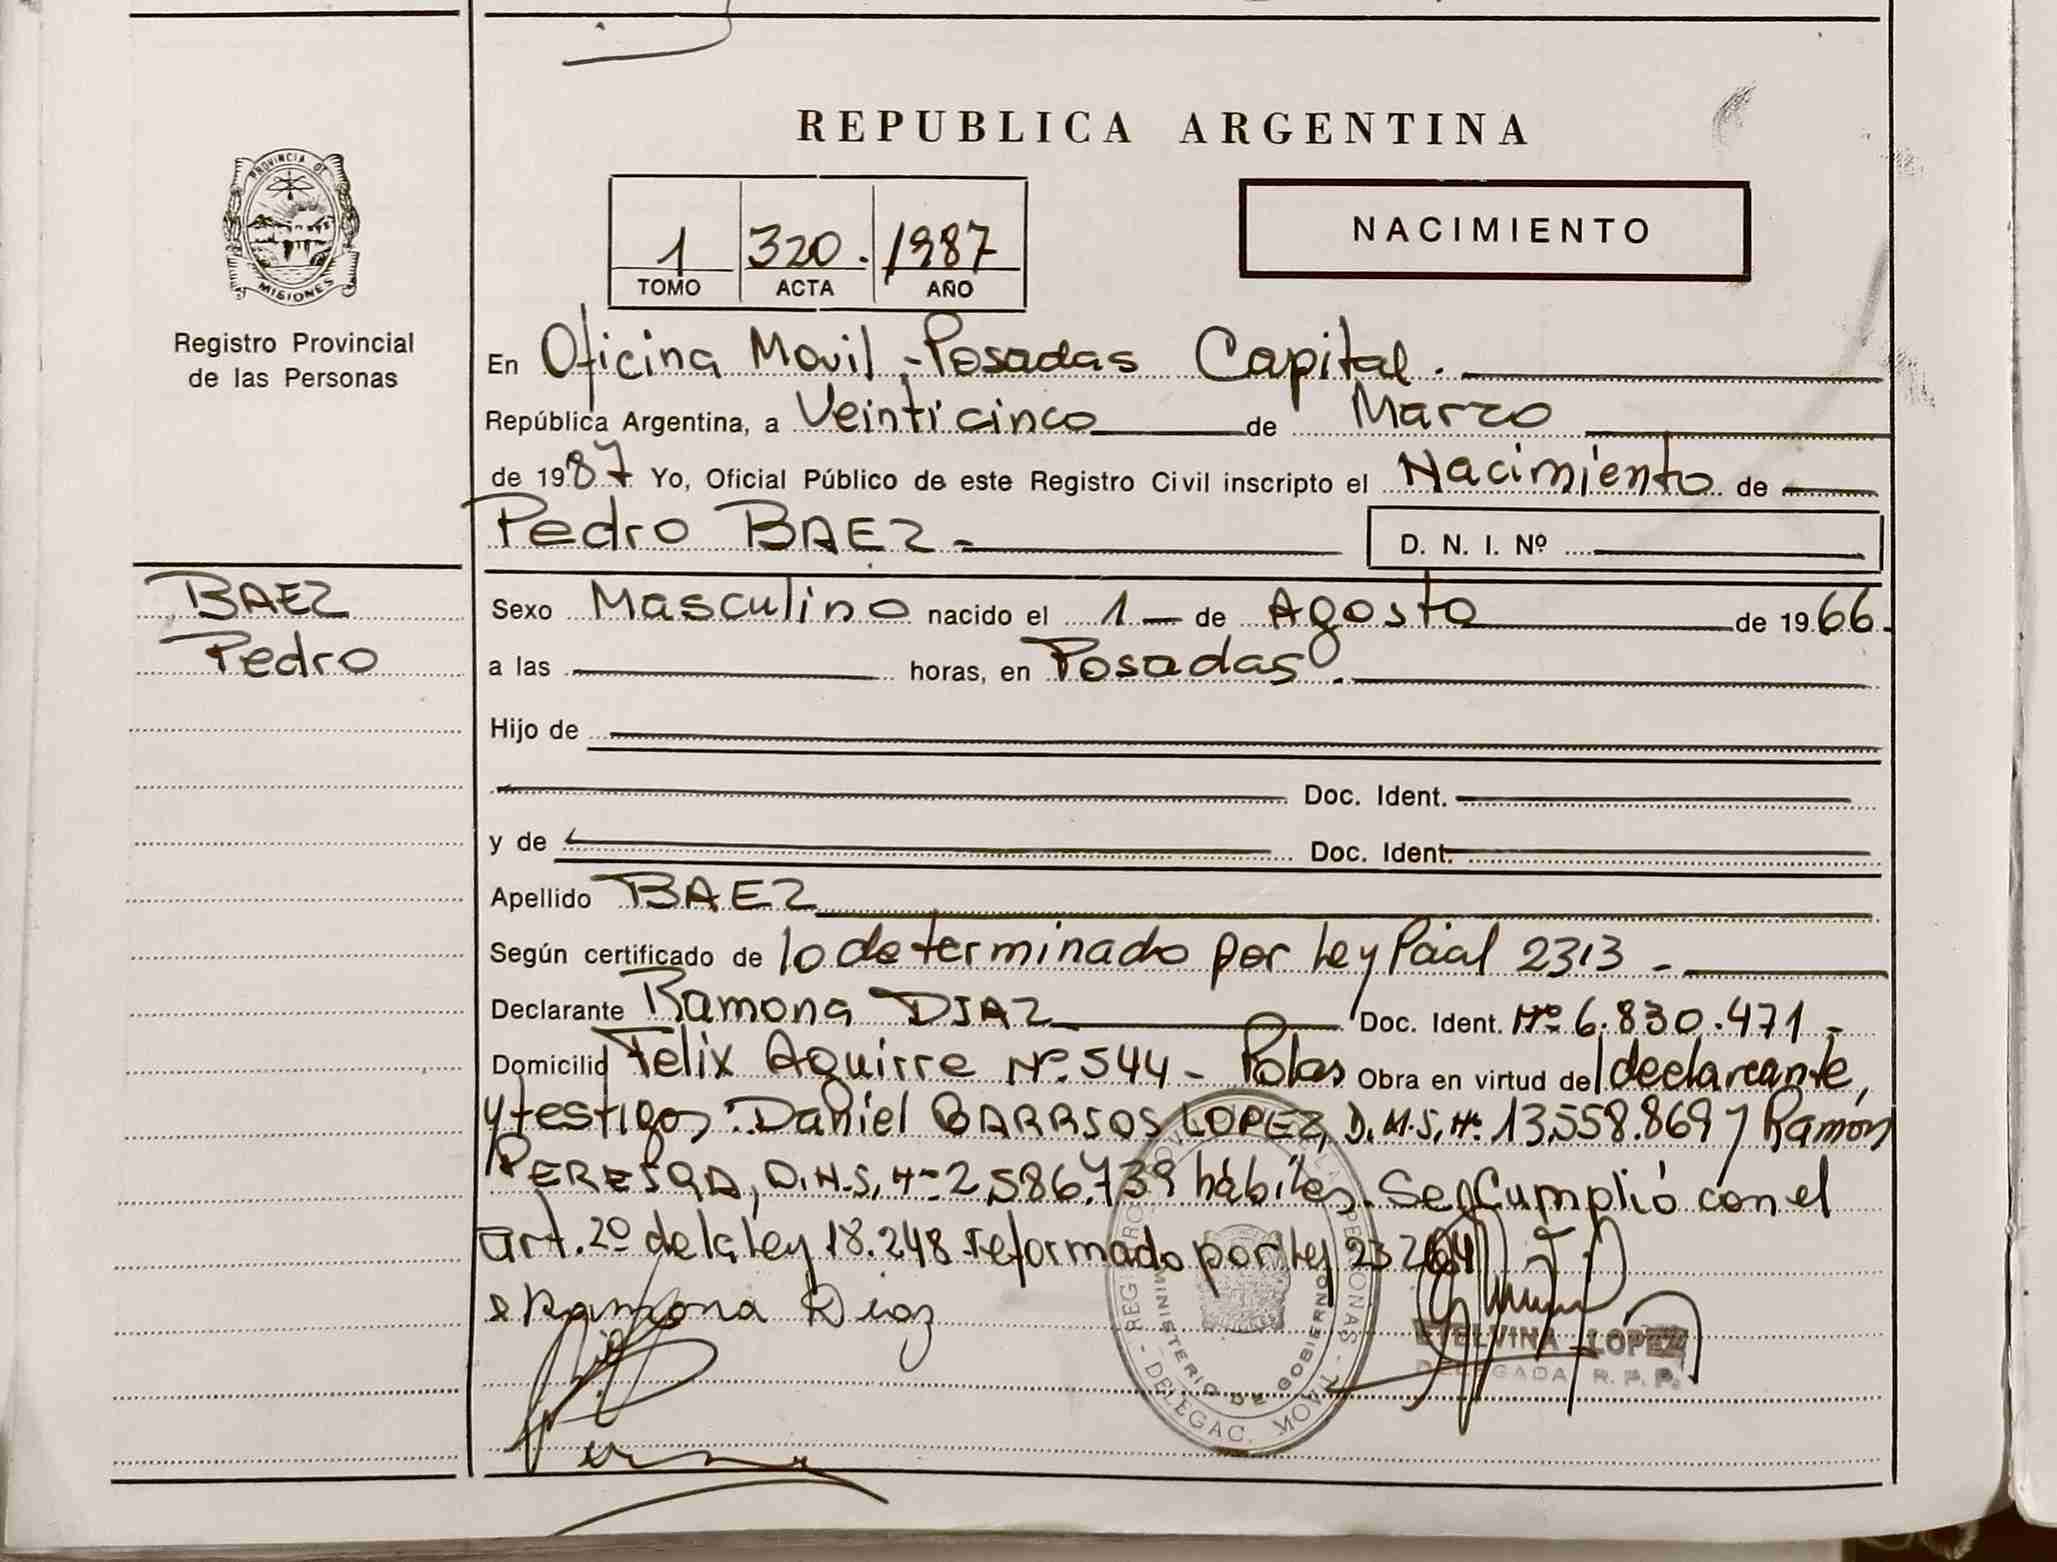 REPUBLICA ARGENTINA
PROVINCIA DE
MISIONES
Registro Provincial
de las Personas
NACIMIENTO
1 320. 1987
TOMO ACTA AÑO
En Oficina Movil - Posadas Capital.
República Argentina, a Veinticinco de Marzo
de 1987 Yo, Oficial Público de este Registro Civil inscripto el Nacimiento de
Pedro BAEZ - D. N. I. Nº
BAEZ
Pedro
Sexo Masculino nacido el 1 de Agosto de 1966.
a las horas, en Posadas.
Hijo de
Doc. Ident.
y de Doc. Ident.
Apellido BAEZ
Según certificado de lo determinado por Ley Pcial 2313 -
Declarante Ramona DIAZ Doc. Ident. Nº 6.830.471 -
Domicilio Felix Aguirre Nº 544 - Pdas Obra en virtud del declarante,
y testigos: Daniel BARRIOS LOPEZ, D.N.I. Nº 13.558.869 y Ramón
D.N.I. Nº 2.586.739 hábiles. Se Cumplió con el
art. 2º de la Ley 18.248 reformado por Ley 23264
Ramona Diaz
MINISTERIO DE GOBIERNO
DELEGAC. MOVIL
ETELVINA LOPEZ
DELEGADA R. P. P.